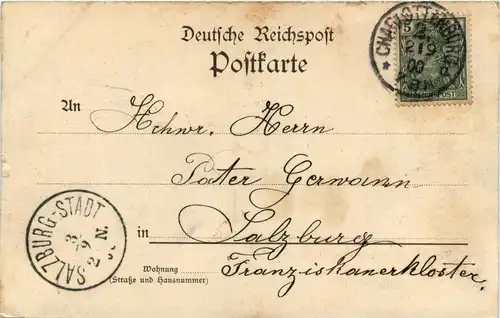 Deutsche Reichspost
Postkarte
CHARLOTTENBURG
2
9
00
5
An
Hchwr. Herrn
Pater Germann
in
Salzburg
Wohnung
(Straße und Hausnummer)
Franziskanerkloster.
SALZBURG-STADT
3
9
2 N.